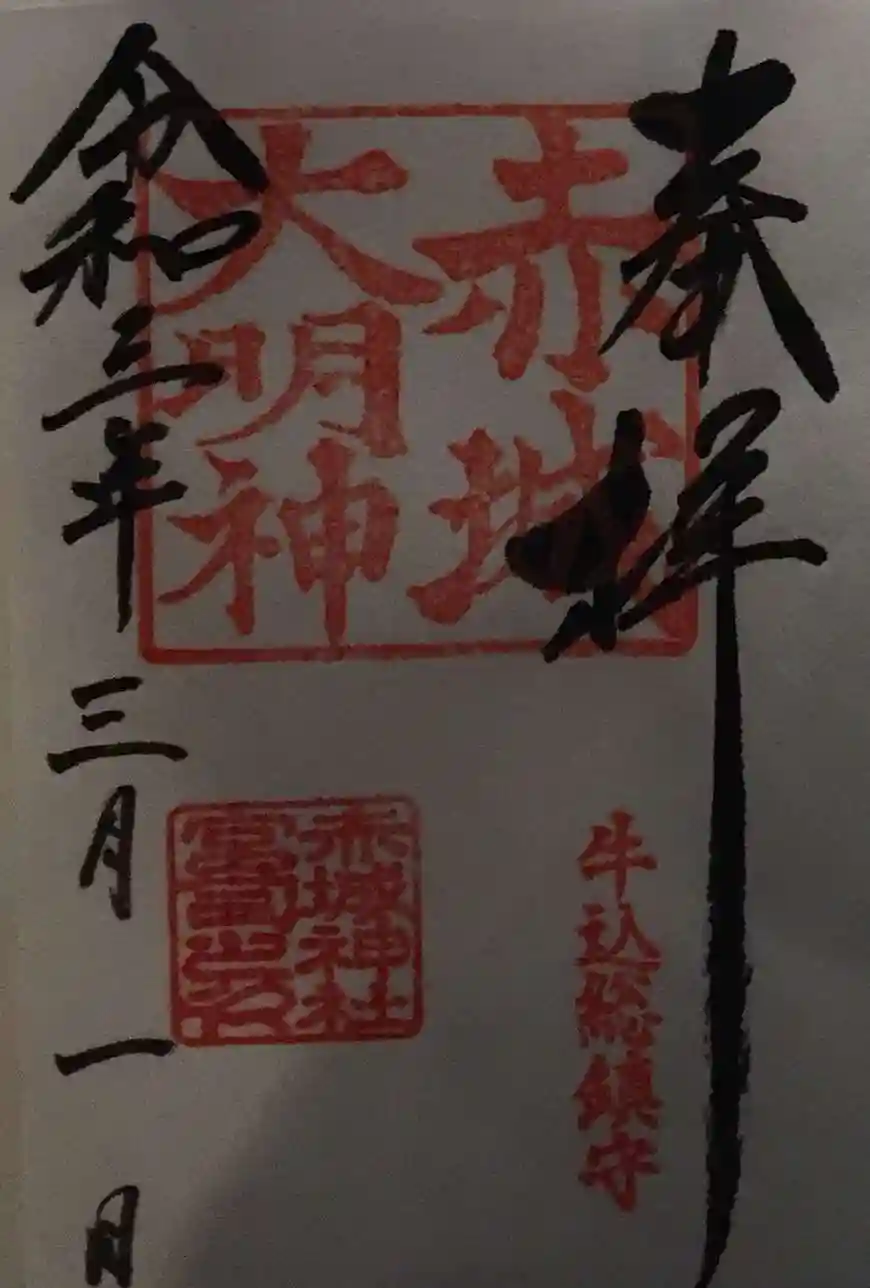 奉拝
赤城
大明神
牛込総鎮守
赤城神社
令和三年三月一日